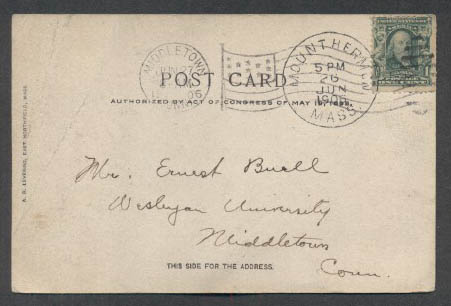 MIDDLETOWN
JUN 27
06
CONN.
MOUNT HERMON
5 PM
26
JUN
1906
MASS.
POST CARD
AUTHORIZED BY ACT OF CONGRESS OF MAY 19, 1898.
Mr. Ernest Buell
Wesleyan University
Middletown
Conn.
THIS SIDE FOR THE ADDRESS.
EAST NORTHFIELD, MASS.